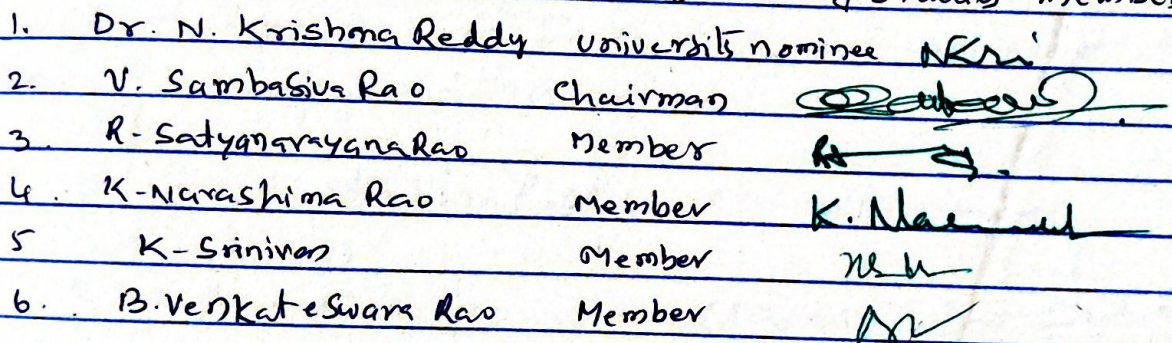 member
1. Dr. N. Krishna Reddy universits nominee NKri
2. V. Sambasiva Rao Chairman
3. R-Satyanarayana Rao Member
4. K-Narashima Rao Member
5 K-Srinivas Member
6. B.Venkateswara Rao Member